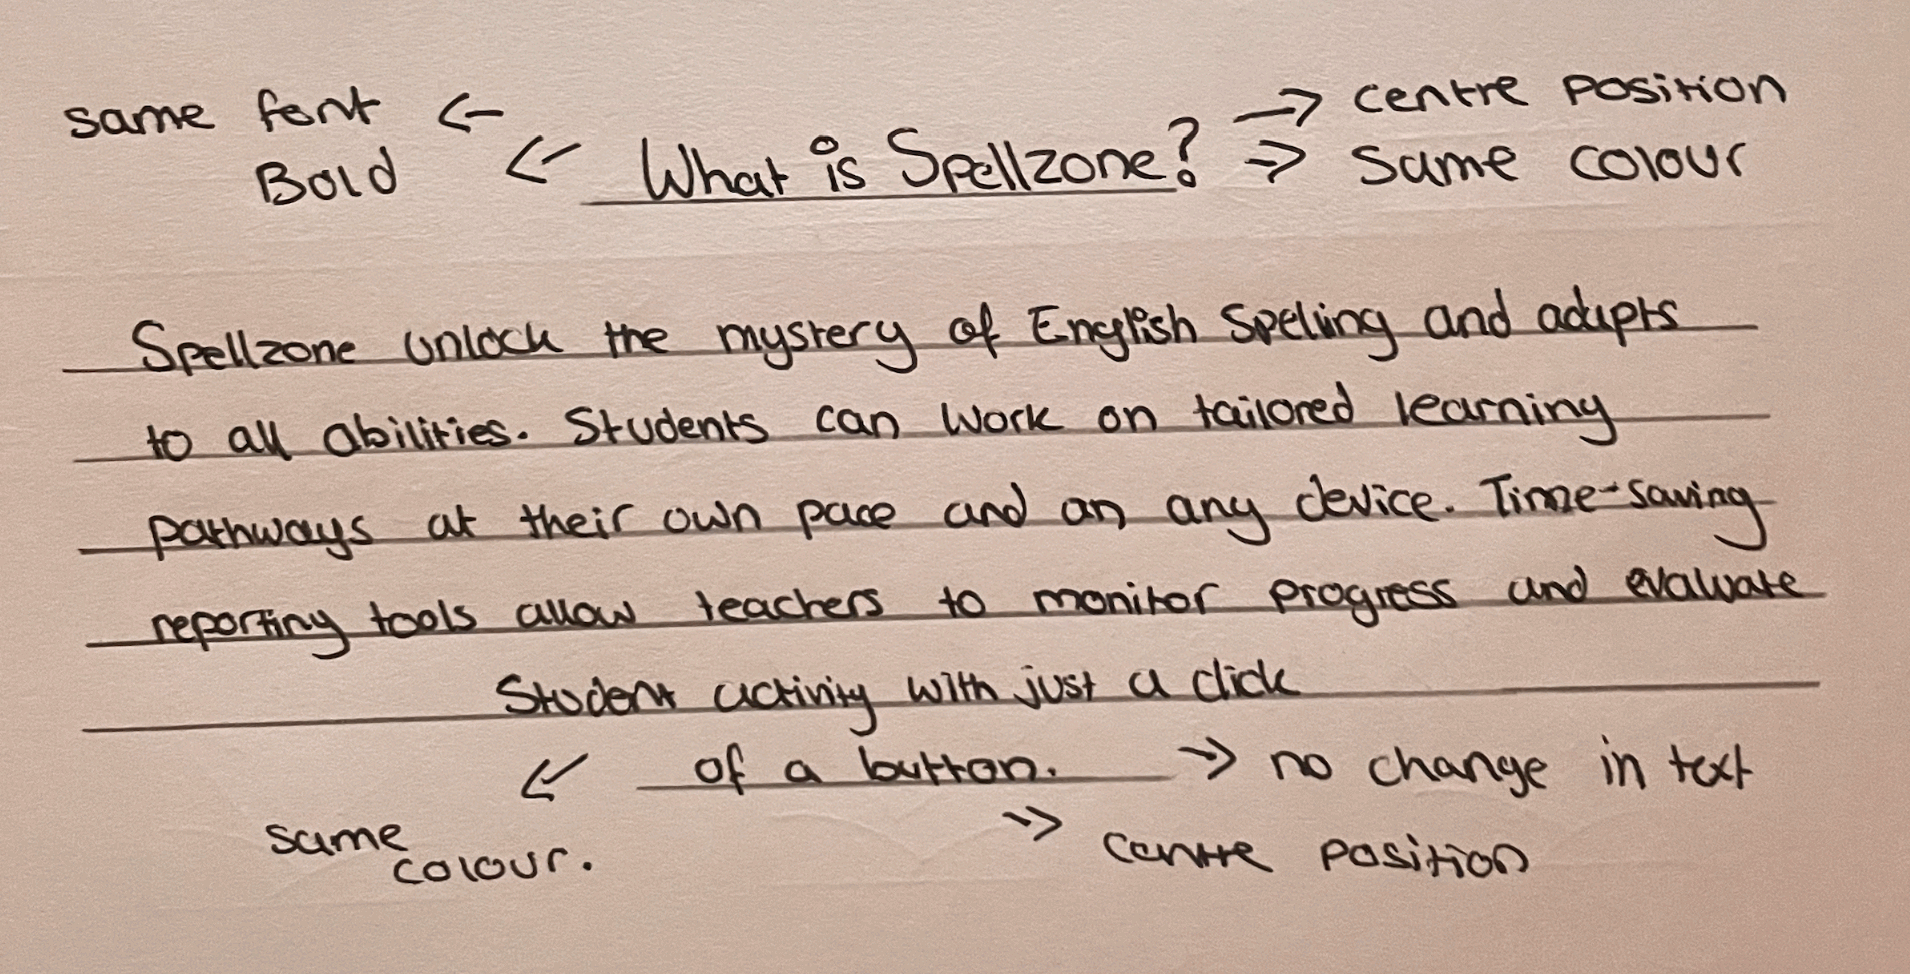 same font ← → centre position
Bold ← What is Spellzone? → Same colour
Spellzone unlock the mystery of English Speling and adapts
to all abilities. Students can work on tailored learning
pathways at their own pace and on any device. Time-saving
reporting tools allow teachers to monitor progress and evaluate
Student activity with just a click
of a button. → no change in text
same → centre position
colour.